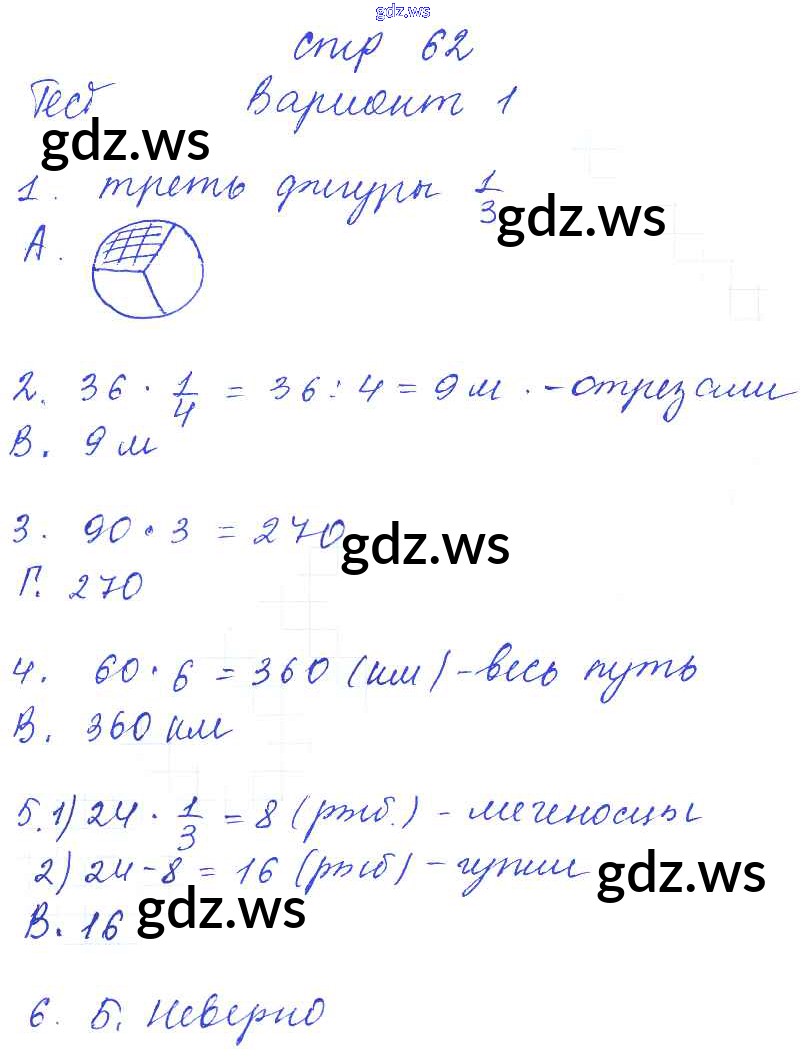 gdz.ws
стр 62
Тест Вариант 1
gdz.ws
1. треть фигуры 1/3
gdz.ws
А.
2. 36 · 1/4 = 36 : 4 = 9 м. - отрезали
В. 9 м
3. 90 · 3 = 270
gdz.ws
Г. 270
4. 60 · 6 = 360 (км) - весь путь
В. 360 км
5. 1) 24 · 1/3 = 8 (рыб.) - меченосцы
2) 24 - 8 = 16 (рыб) - гуппии
gdz.ws
В. 16
gdz.ws
6. Б. Неверно